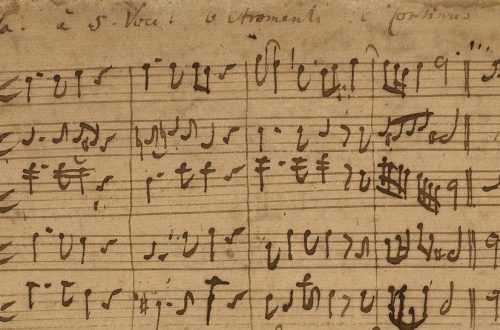 à 5. Voci: è Stromenti è Continuo